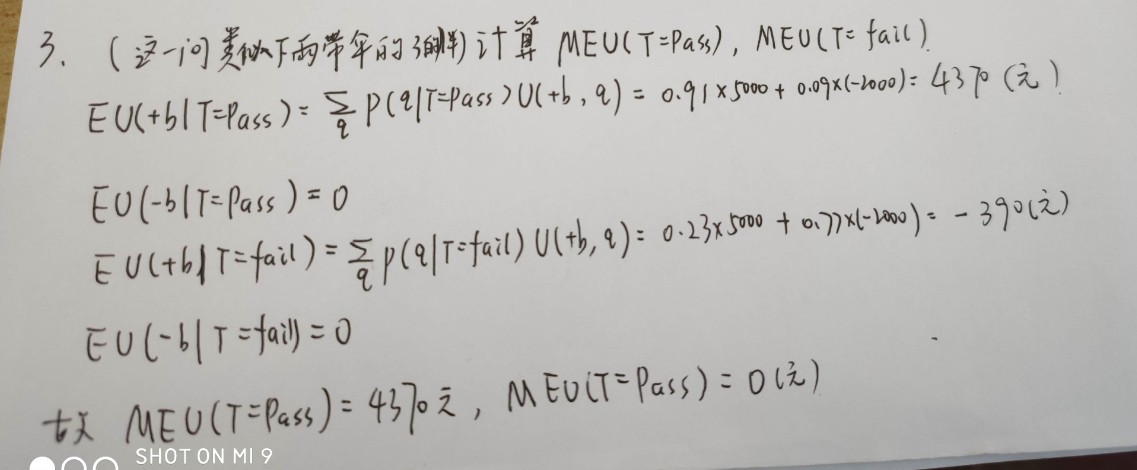 3. (这一问类似下雨带伞的子例) 计算 MEU(T=Pass), MEU(T=fail).
EU(+b|T=Pass) = Σ_q P(q|T=Pass) U(+b, q) = 0.91×5000 + 0.09×(-2000) = 4370 (元)
EU(-b|T=Pass) = 0
EU(+b|T=fail) = Σ_q P(q|T=fail) U(+b, q) = 0.23×5000 + 0.77×(-2000) = -390(元)
EU(-b|T=fail) = 0
故 MEU(T=Pass) = 4370元, MEU(T=Pass) = 0(元)
SHOT ON MI 9